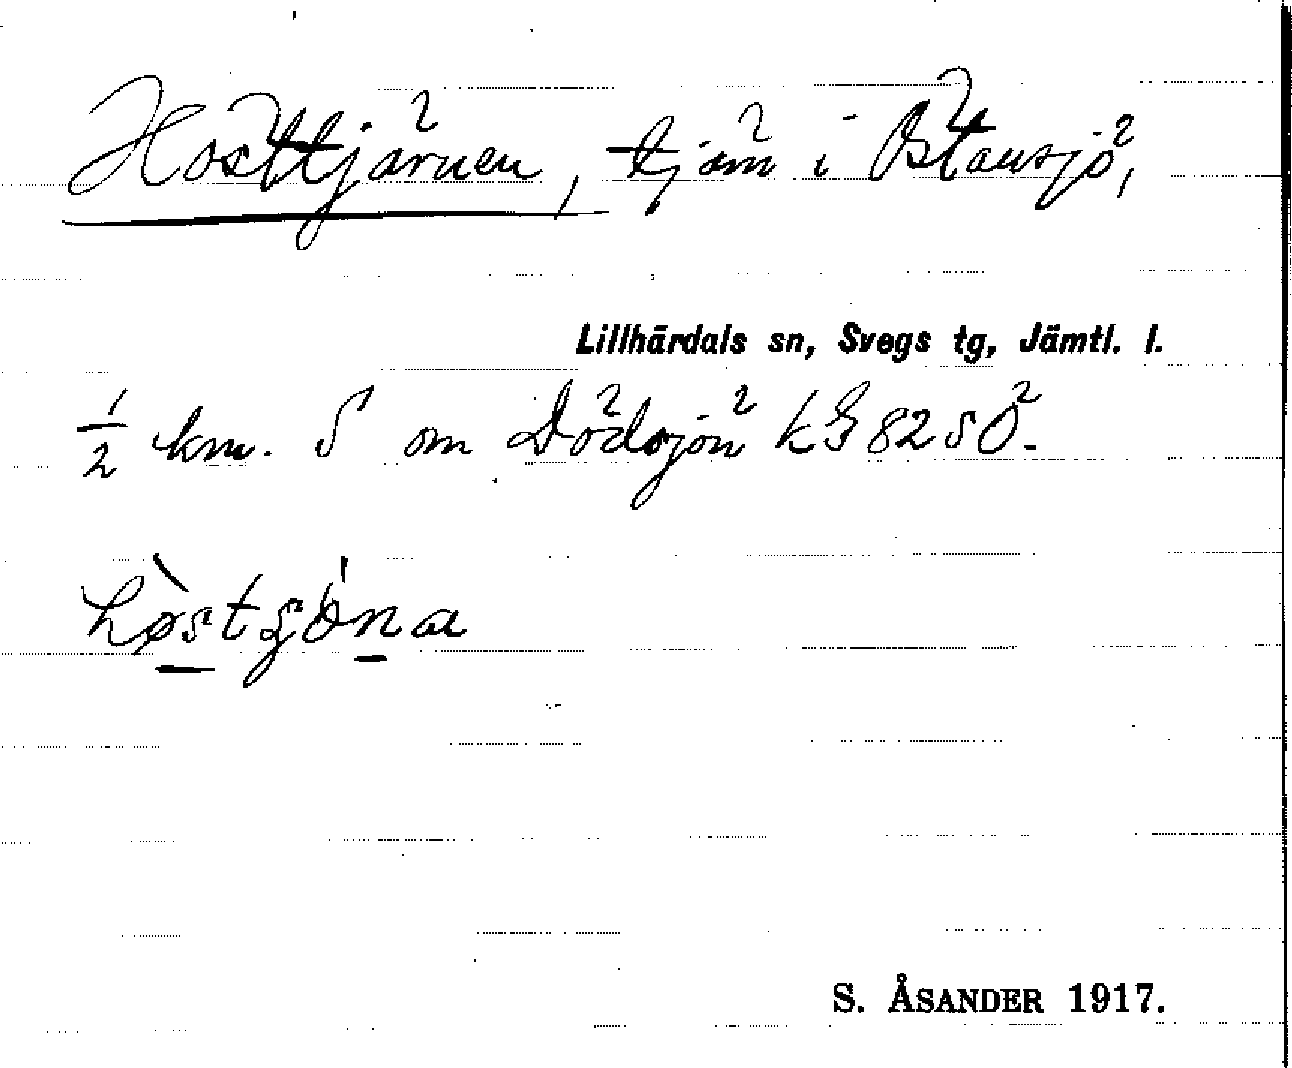 Hösttjärnen, tjärn i Östansjö,
Lillhärdals sn, Svegs tg, Jämtl. l.
½ km. S om Dödsjön kG 82 SÖ.
hø̀stʃö́na
S. ÅSANDER 1917.